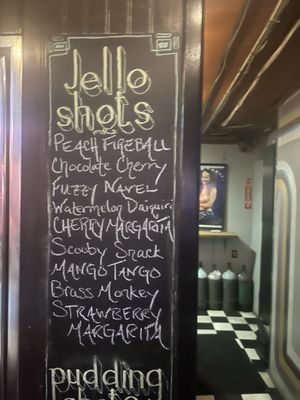 Jello
shots
PEACH FIREBALL
Chocolate Cherry
FUZZY NAVEL
Watermelon Daiquiri
CHERRY MARGARITA
Scooby Snack
MANGO TANGO
Brass Monkey
STRAWBERRY
MARGARITA
pudding